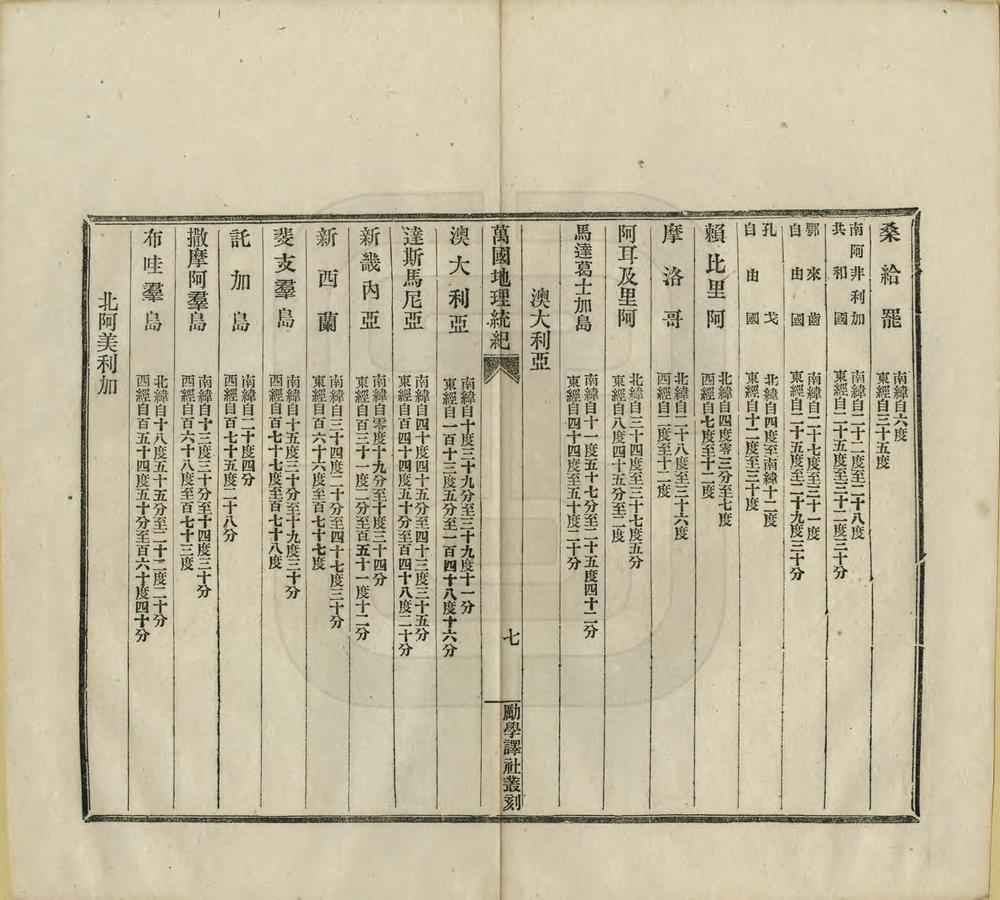 桑給罷
南緯自六度
東經自三十五度
南阿非利加
共和國
南緯自二十二度至二十八度
東經自二十五度至三十二度三十分
鄂來齒
自由國
南緯自二十七度至三十一度
東經自二十五度至二十九度三十分
孔戈
自由國
北緯自四度至南緯十二度
東經自十二度至三十度
賴比里阿
北緯自四度零三分至七度
西經自七度至十二度
摩洛哥
北緯自二十八度至三十六度
西經自二度至十二度
阿耳及里阿
北緯自三十四度至三十七度五分
東經自八度四十五分至二度
馬達葛士加島
南緯自十一度五十七分至二十五度四十二分
東經自四十四度至五十度二十分
澳大利亞
萬國地理統紀
七
勵學譯社叢刻
澳大利亞
南緯自十度三十九分至三十九度十一分
東經自一百十三度五分至一百四十八度十六分
達斯馬尼亞
南緯自四十度四十五分至四十三度三十五分
東經自百四十四度五十分至百四十八度二十分
新畿內亞
南緯自零度十九分至十度三十四分
東經自百三十一度二分至百五十一度十二分
新西蘭
南緯自三十四度二十分至四十七度三十分
東經自百六十六度至百七十七度
斐支羣島
南緯自十五度三十分至十九度三十分
西經自百七十七度至百七十八度
託加島
南緯自二十度四分
西經自百七十五度二十八分
撒摩阿羣島
南緯自十三度三十分至十四度三十分
西經自百六十八度至百七十三度
布哇羣島
北緯自十八度五十五分至二十二度二十分
西經自百五十四度五十分至百六十度四十分
北阿美利加